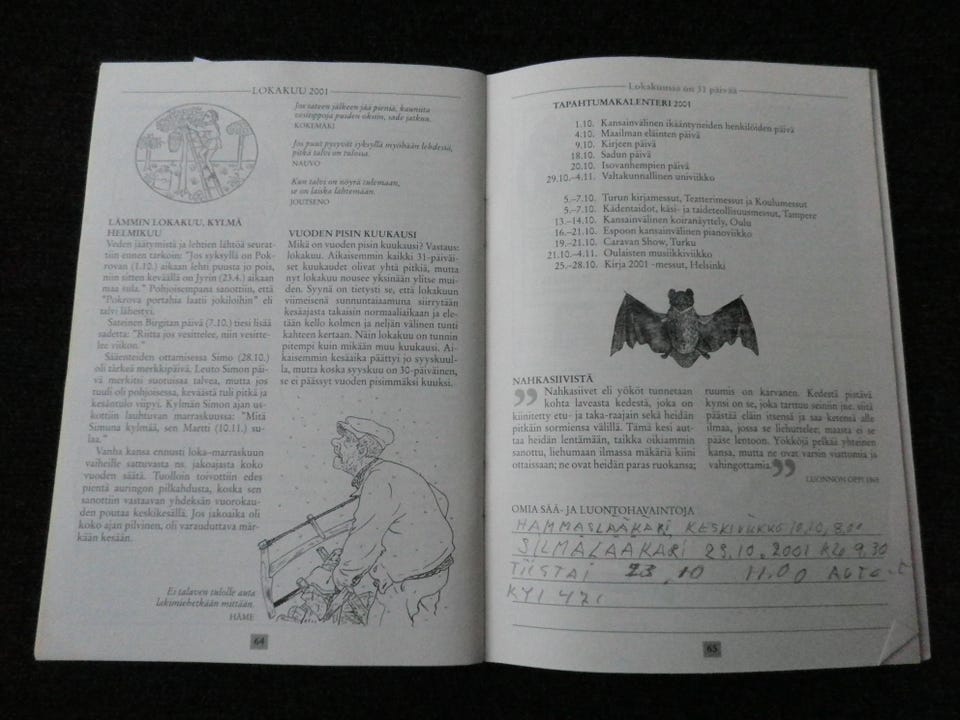 LOKAKUU 2001
Jos sateen jälkeen jää pieniä, kauniita
vesitippoja puiden oksiin, sade jatkuu.
KOKEMÄKI
Jos puut pysyvät syksyllä myöhään lehdessä,
pitkä talvi on tulossa.
NAUVO
Kun talvi on nöyrä tulemaan,
se on laiska lähtemään.
JOUTSENO
LÄMMIN LOKAKUU, KYLMÄ
HELMIKUU
Veden jäätymistä ja lehtien lähtöä seurat-
tiin ennen tarkoin: "Jos syksyllä on Pok-
rovan (1.10.) aikaan lehti puusta jo pois,
niin sitten keväällä on Jyrin (23.4.) aikaan
maa sula." Pohjoisempana sanottiin, että
"Pokrova portahia laatii jokiloihin" eli
talvi lähestyi.
Sateinen Birgitan päivä (7.10.) tiesi lisää
sadetta: "Riitta jos vesittelee, niin vesitte-
lee viikon."
Sääenteiden ottamisessa Simo (28.10.)
oli tärkeä merkkipäivä. Leuto Simon päi-
vä merkitsi suotuisaa talvea, mutta jos
tuuli oli pohjoisessa, keväästä tuli pitkä ja
kesäntulo viipyi. Kylmän Simon ajan us-
kottiin lauhtuvan marraskuussa: "Mitä
Simuna kylmää, sen Martti (10.11.) su-
laa."
Vanha kansa ennusti loka–marraskuun
vaiheille sattuvasta ns. jakoajasta koko
vuoden säätä. Tuolloin toivottiin edes
pientä auringon pilkahdusta, koska sen
sanottiin vastaavan yhdeksän vuorokau-
den poutaa keskikesällä. Jos jakoaika oli
koko ajan pilvinen, oli varauduttava mär-
kään kesään.
Ei talaven tulolle auta
lakimiehetkään mittään.
HÄME
VUODEN PISIN KUUKAUSI
Mikä on vuoden pisin kuukausi? Vastaus:
lokakuu. Aikaisemmin kaikki 31-päiväi-
set kuukaudet olivat yhtä pitkiä, mutta
nyt lokakuu nousee yksinään ylitse mui-
den. Syynä on tietysti se, että lokakuun
viimeisenä sunnuntaiaamuna siirrytään
kesäajasta takaisin normaaliaikaan ja ele-
tään kello kolmen ja neljän välinen tunti
kahteen kertaan. Näin lokakuu on tunnin
pitempi kuin mikään muu kuukausi. Ai-
kaisemmin kesäaika päättyi jo syyskuul-
la, mutta koska syyskuu on 30-päiväinen,
se ei päässyt vuoden pisimmäksi kuuksi.
64
Lokakuussa on 31 päivää
TAPAHTUMAKALENTERI 2001
1.10. Kansainvälinen ikääntyneiden henkilöiden päivä
4.10. Maailman eläinten päivä
9.10. Kirjeen päivä
18.10. Sadun päivä
20.10. Isovanhempien päivä
29.10.–4.11. Valtakunnallinen univiikko
5.–7.10. Turun kirjamessut, Teatterimessut ja Koulumessut
5.–7.10. Kädentaidot, käsi- ja taideteollisuusmessut, Tampere
13.–14.10. Kansainvälinen koiranäyttely, Oulu
16.–21.10. Espoon kansainvälinen pianoviikko
19.–21.10. Caravan Show, Turku
21.10.–4.11. Oulaisten musiikkiviikko
25.–28.10. Kirja 2001 -messut, Helsinki
NAHKASIIVISTÄ
"Nahkasiivet eli yököt tunnetaan
kohta laveasta kedestä, joka on
kiinitetty etu- ja taka-raajain sekä heidän
pitkäin sormiensa välillä. Tämä kesi aut-
taa heidän lentämään, taikka oikiammin
sanottu, liehumaan ilmassa mäkäriä kiini
ottaissaan; ne ovat heidän paras ruokansa;
ruumis on karvanen. Kedestä pistävä
kynsi on se, joka tarttuu seiniin jne. siitä
päästää eläin itsensä ja saa ketensä alle
ilmaa, jossa se liehuttelee; maasta ei se
pääse lentoon. Yökköjä pelkää yhteinen
kansa, mutta ne ovat varsin viattomia ja
vahingottomia."
LUONNON OPPI 1868
OMIA SÄÄ- JA LUONTOHAVAINTOJA
HAMMASLÄÄKÄRI, KESKIVIIKKO 10.10, 8.00
SILMÄLÄÄKÄRI 23.10.2001 KLO 9.30
TIISTAI 23.10 11.00 AUTO
KYI 471
65